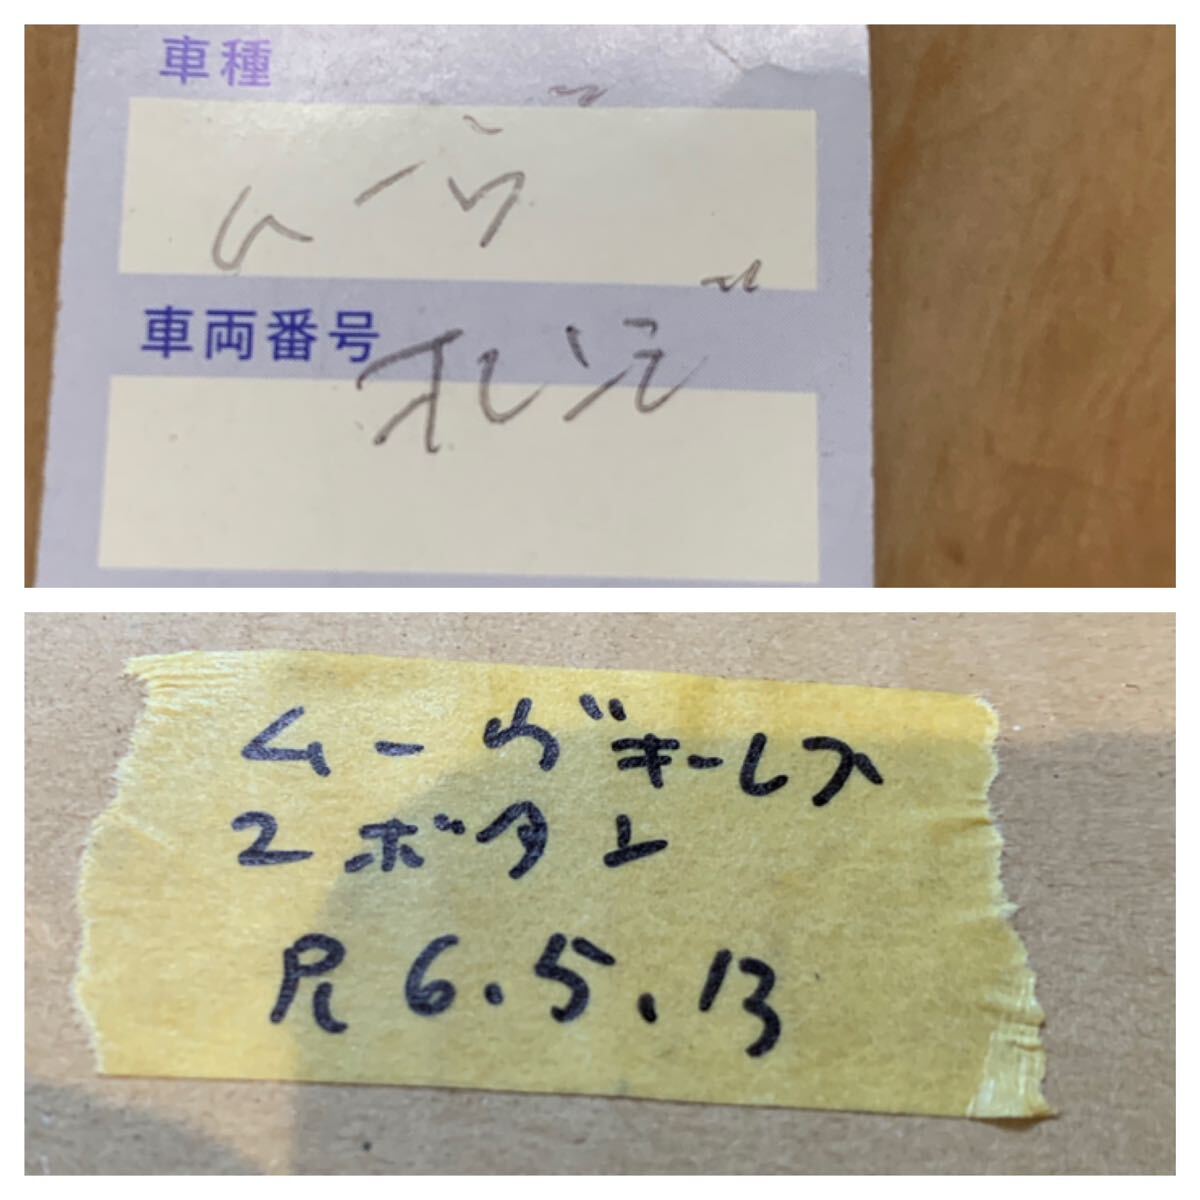 車種
ムーヴ
車両番号
ムーヴキーレス
2ボタン
R6.5.13